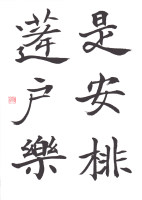 是安排
蓬户樂